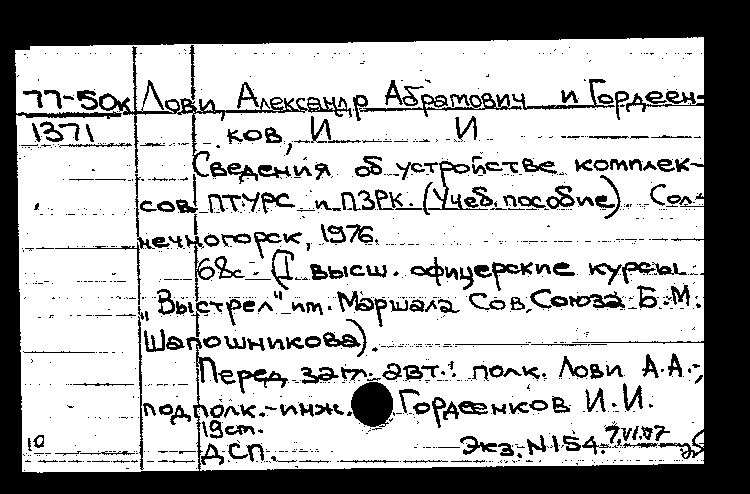 77-50к Лови, Александр Абрамович и Гордеен-
1371 ков, И И
Сведения об устройстве комплек-
сов ПТУРС и ПЗРК. (Учеб. пособие). Сол-
нечногорск, 1976.
68с. (I высш. офицерские курсы
"Выстрел" им. Маршала Сов. Союза Б.М.
Шапошникова).
Перед загл. авт.: полк. Лови А.А.,
подполк.-инж. Гордеенков И.И.
19см.
10 ДСП. Экз. N154. 7.VI.07